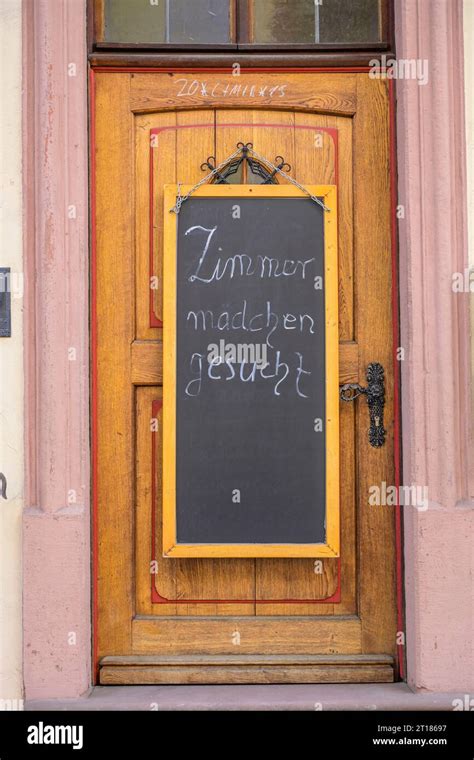 20*C+M+B*15
Zimmer
mädchen
gesucht
alamy
Image ID: 2T18697
www.alamy.com